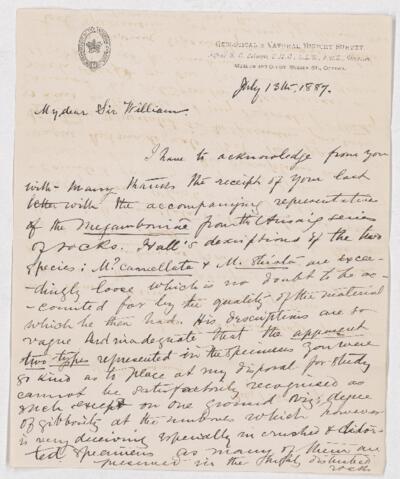 GEOLOGICAL & NATURAL HISTORY SURVEY
MUSEUM AND OFFICE SUSSEX ST., OTTAWA.
July 13th, 1887.
My dear Sir William.
I have to acknowledge from you
with many thanks the receipt of your last
letter with the accompanying representatives
of the Megambonia from the Arisaig series
of rocks. Hall's descriptions of the two
species: M. cancellata & M. striata are excee-
-dingly loose which is no doubt to be ac-
-counted for by the quality of the material
which he then had. His descriptions are so
vague and inadequate that the apparent
two types represented in the specimens you were
so kind as to place at my disposal for study
cannot be satisfactorily recognised as
such except on one ground viz: degree
of gibbosity at the umbones which however
is very deceiving especially in crushed & distor-
ted specimens as many of them are
preserved in the highly disturbed
rocks